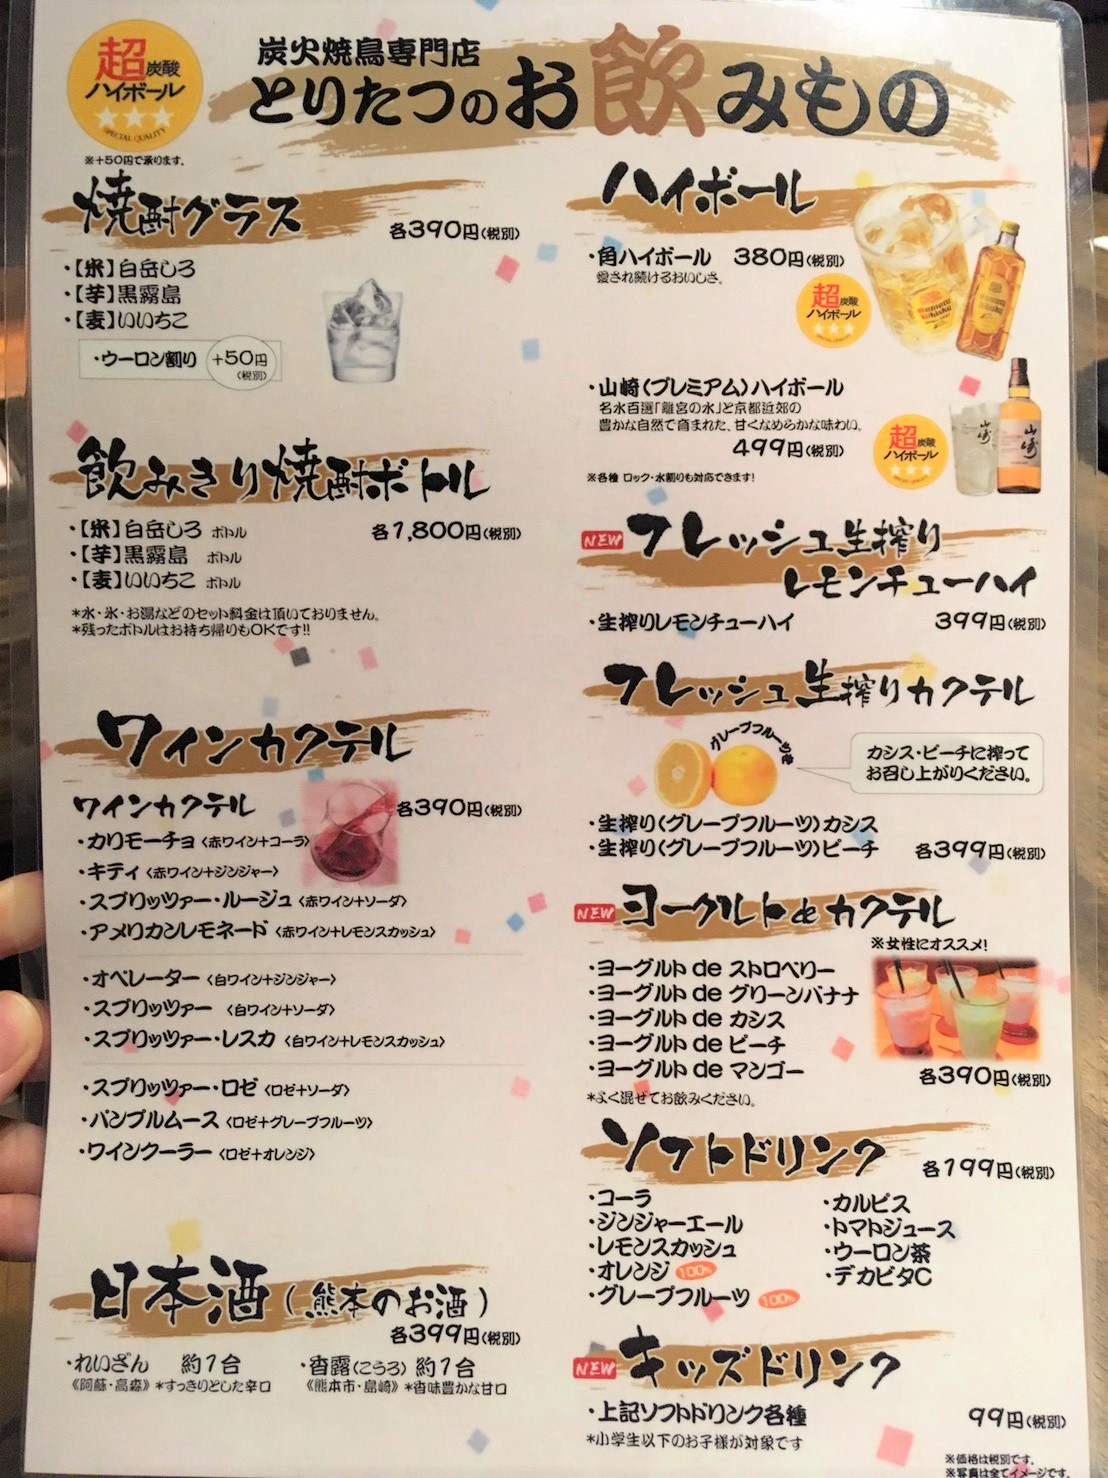 超炭酸
ハイボール
SPECIAL QUALITY
※+50円で承ります。
炭火焼鳥専門店
とりたつのお飲みもの
焼酎グラス
各390円(税別)
・【米】白岳しろ
・【芋】黒霧島
・【麦】いいちこ
・ウーロン割り +50円
(税別)
飲みきり焼酎ボトル
・【米】白岳しろ ボトル 各1,800円(税別)
・【芋】黒霧島 ボトル
・【麦】いいちこ ボトル
*水・氷・お湯などのセット料金は頂いておりません。
*残ったボトルはお持ち帰りもOKです!!
ワインカクテル
ワインカクテル 各390円(税別)
・カリモーチョ〈赤ワイン+コーラ〉
・キティ〈赤ワイン+ジンジャー〉
・スプリッツァー・ルージュ〈赤ワイン+ソーダ〉
・アメリカンレモネード〈赤ワイン+レモンスカッシュ〉
・オペレーター〈白ワイン+ジンジャー〉
・スプリッツァー〈白ワイン+ソーダ〉
・スプリッツァー・レスカ〈白ワイン+レモンスカッシュ〉
・スプリッツァー・ロゼ〈ロゼ+ソーダ〉
・パンプルムース〈ロゼ+グレープフルーツ〉
・ワインクーラー〈ロゼ+オレンジ〉
日本酒(熊本のお酒)
各399円(税別)
・れいざん 約1合
《阿蘇・高森》*すっきりとした辛口
・香露(こうろ) 約1合
《熊本市・島崎》*香味豊かな甘口
ハイボール
・角ハイボール 380円(税別)
愛され続けるおいしさ。
超炭酸
ハイボール
・山崎(プレミアム)ハイボール
名水百選「離宮の水」と京都近郊の
豊かな自然で育まれた、甘くなめらかな味わい。
499円(税別)
超炭酸
ハイボール
山崎
山崎
※各種 ロック・水割りも対応できます!
NEW フレッシュ生搾り
レモンチューハイ
・生搾りレモンチューハイ 399円(税別)
フレッシュ生搾りカクテル
グレープフルーツを
カシス・ピーチに搾って
お召し上がりください。
・生搾り(グレープフルーツ)カシス
・生搾り(グレープフルーツ)ピーチ 各399円(税別)
NEW ヨーグルトdeカクテル
※女性にオススメ!
・ヨーグルト de ストロベリー
・ヨーグルト de グリーンバナナ
・ヨーグルト de カシス
・ヨーグルト de ピーチ
・ヨーグルト de マンゴー
各390円(税別)
*よく混ぜてお飲みください。
ソフトドリンク
各199円(税別)
・コーラ
・ジンジャーエール
・レモンスカッシュ
・オレンジ 100%
・グレープフルーツ 100%
・カルピス
・トマトジュース
・ウーロン茶
・デカビタC
NEW キッズドリンク
・上記ソフトドリンク各種 99円(税別)
*小学生以下のお子様が対象です
※価格は税別です。
※写真は全てイメージです。